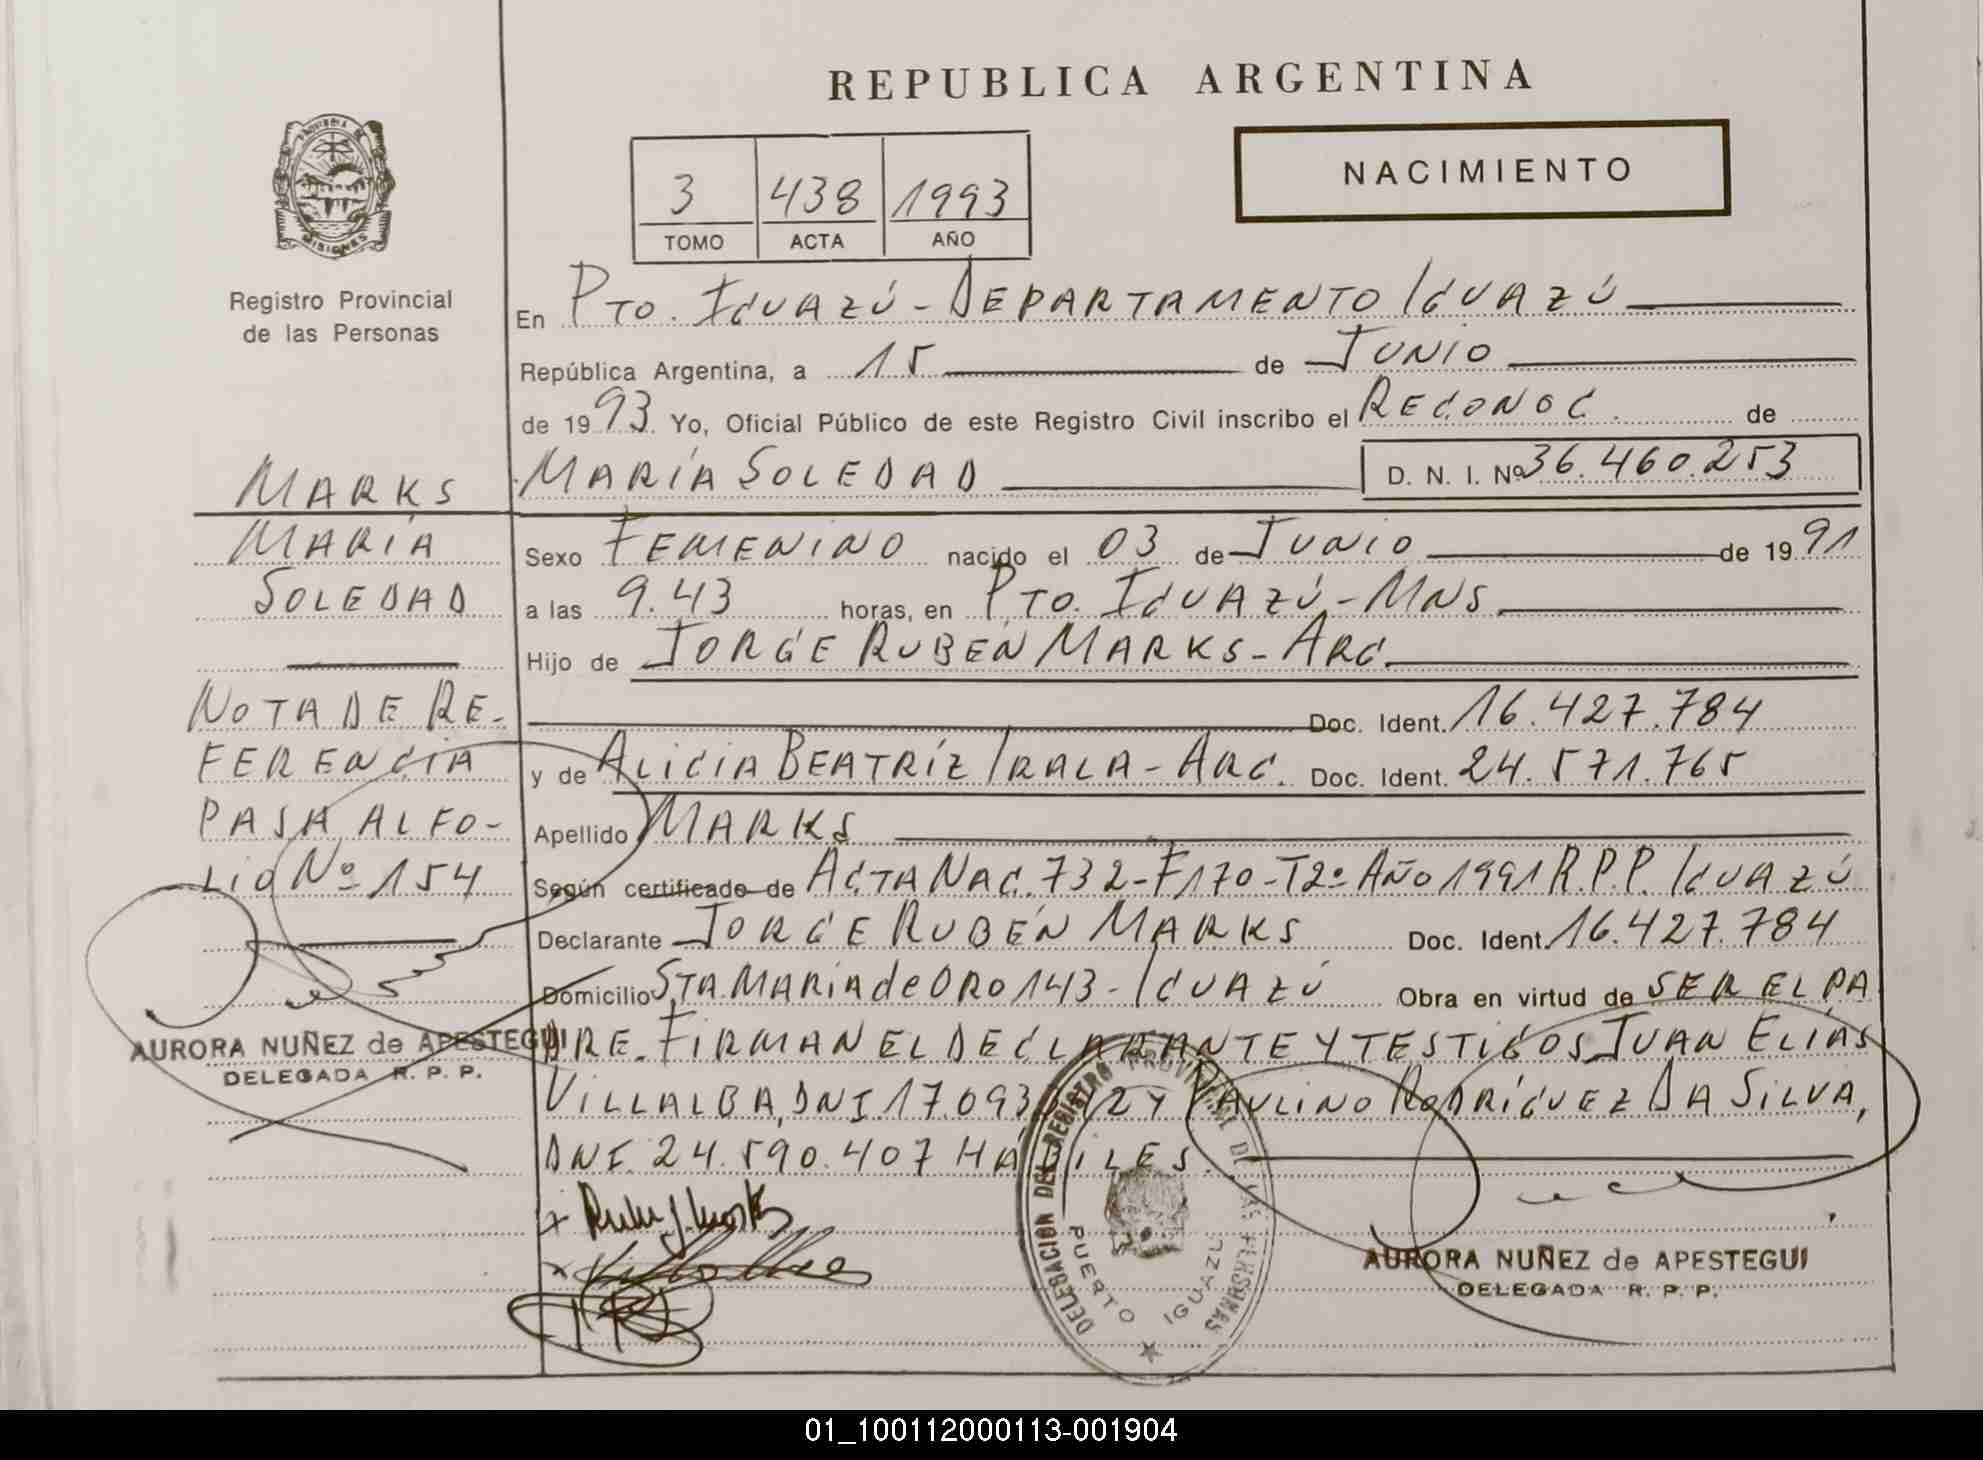 REPUBLICA ARGENTINA
NACIMIENTO
3 438 1993
TOMO ACTA AÑO
PROVINCIA DE
MISIONES
Registro Provincial
de las Personas
En Pto. Iguazú - Departamento Iguazú
República Argentina, a 15 de Junio
de 1993. Yo, Oficial Público de este Registro Civil inscribo el Reconoc. de
María Soledad D. N. I. Nº 36.460.253
Sexo Femenino nacido el 03 de Junio de 1991
a las 9.43 horas, en Pto. Iguazú - Mns
Hijo de Jorge Ruben Marks - Arg.
Doc. Ident. 16.427.784
y de Alicia Beatríz Irala - Arg. Doc. Ident. 24.571.765
Apellido Marks
Según certificado de Acta Nac. 732 - F170 - T2º Año 1991 R.P.P. Iguazú
Declarante Jorge Rubén Marks Doc. Ident. 16.427.784
Domicilio Sta. María de Oro 143 - Iguazú Obra en virtud de ser el pa
dre. Firman el declarante y testigos Juan Elías
Villalba, DNI 17.093. 12 y Paulino Rodríguez Da Silva,
DNI. 24.590.407 Hábiles.
Marks
María
Soledad
Nota de Re-
ferencia
pasa al fo-
lio Nº 154
AURORA NUÑEZ de APESTEGUI
DELEGADA R. P. P.
DELEGACION DEL REGISTRO PROVINCIAL DE LAS PERSONAS
PUERTO IGUAZU
AURORA NUÑEZ de APESTEGUI
DELEGADA R. P. P.
01_100112000113-001904